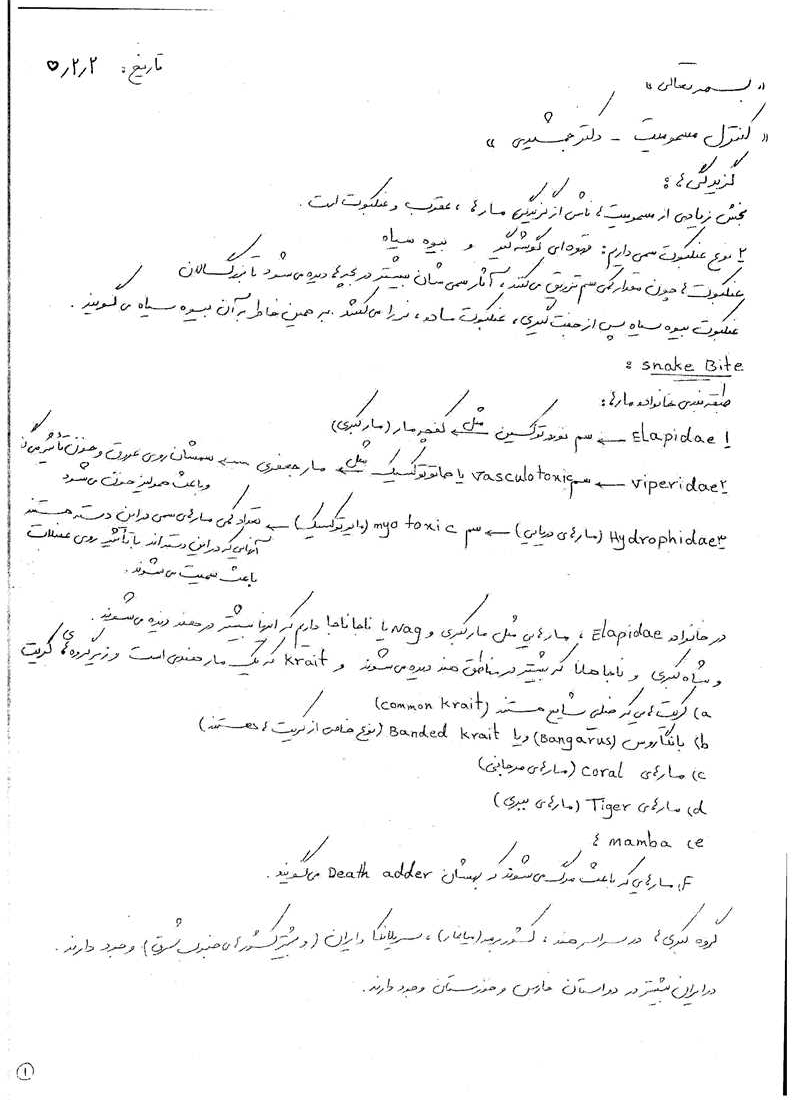 تاریخ: ۵٫۲٫۲
« بسمه تعالی »
« کنترل مسمومیت - دکتر جمشیدی »
گزیدگی ها:
بخش زیادی از مسمومیت ها ناشی از گزیدگی مارها، عقرب و عنکبوت است.
۲ نوع عنکبوت سمی داریم: قهوه ای گوشه گیر و بیوه سیاه
عنکبوت ها چون مقدار کمی سم تزریق می کنند، آثار سمی شان بیشتر در بچه ها دیده می شود تا بزرگسالان
عنکبوت بیوه سیاه پس از جفت گیری، عنکبوت ماده، نر را می کشد. بر همین خاطر به آن بیوه سیاه می گویند.
snake Bite :
طبقه بندی خانواده مارها:
۱ Elapidae ← سم نوروتوکسین مثل ← کفچه مار (مار کبری)
۲ viperidae ← سم vasculotoxic یا هماتوتوکسیک مثل ← مار جعفری ← سمشان روی عروق و خون تأثیر می گذ
و باعث همولیز خون می شود
۳ Hydrophidae (مارهای دریایی) ← سم myotoxic (مایوتوکسیک) ← تعداد کمی مارهای سمی در این دسته هستند
آنهایی که در این دسته اند با تأثیر روی عضلات
باعث سمیت می شوند.
در خانواده Elapidae، مارهایی مثل مار کبری و Nag یا ناجا ناجا داریم که اینها بیشتر در هند دیده می شوند.
و شاه کبری و ناجا هانا که بیشتر در مناطق هند دیده می شوند و krait که یک مار هندی است و زیر گروه های کریت
a) کریت هایی که خیلی شایع هستند (common krait)
b) بانگاروس (Bangarus) و یا Banded krait (نوع خاصی از کریت ها هستند)
c) مارهای coral (مارهای مرجانی)
d) مارهای Tiger (مارهای ببری)
e) mamba ها
F) مارهایی که باعث مرگ می شوند که بهشان Death adder می گویند.
گروه کبری ها در سراسر هند، کشور برمه (میانمار)، سریلانکا و ایران (و بیشتر کشورهای جنوب شرقی) وجود دارند.
در ایران بیشتر در دو استان فارس و خوزستان وجود دارند.
۱